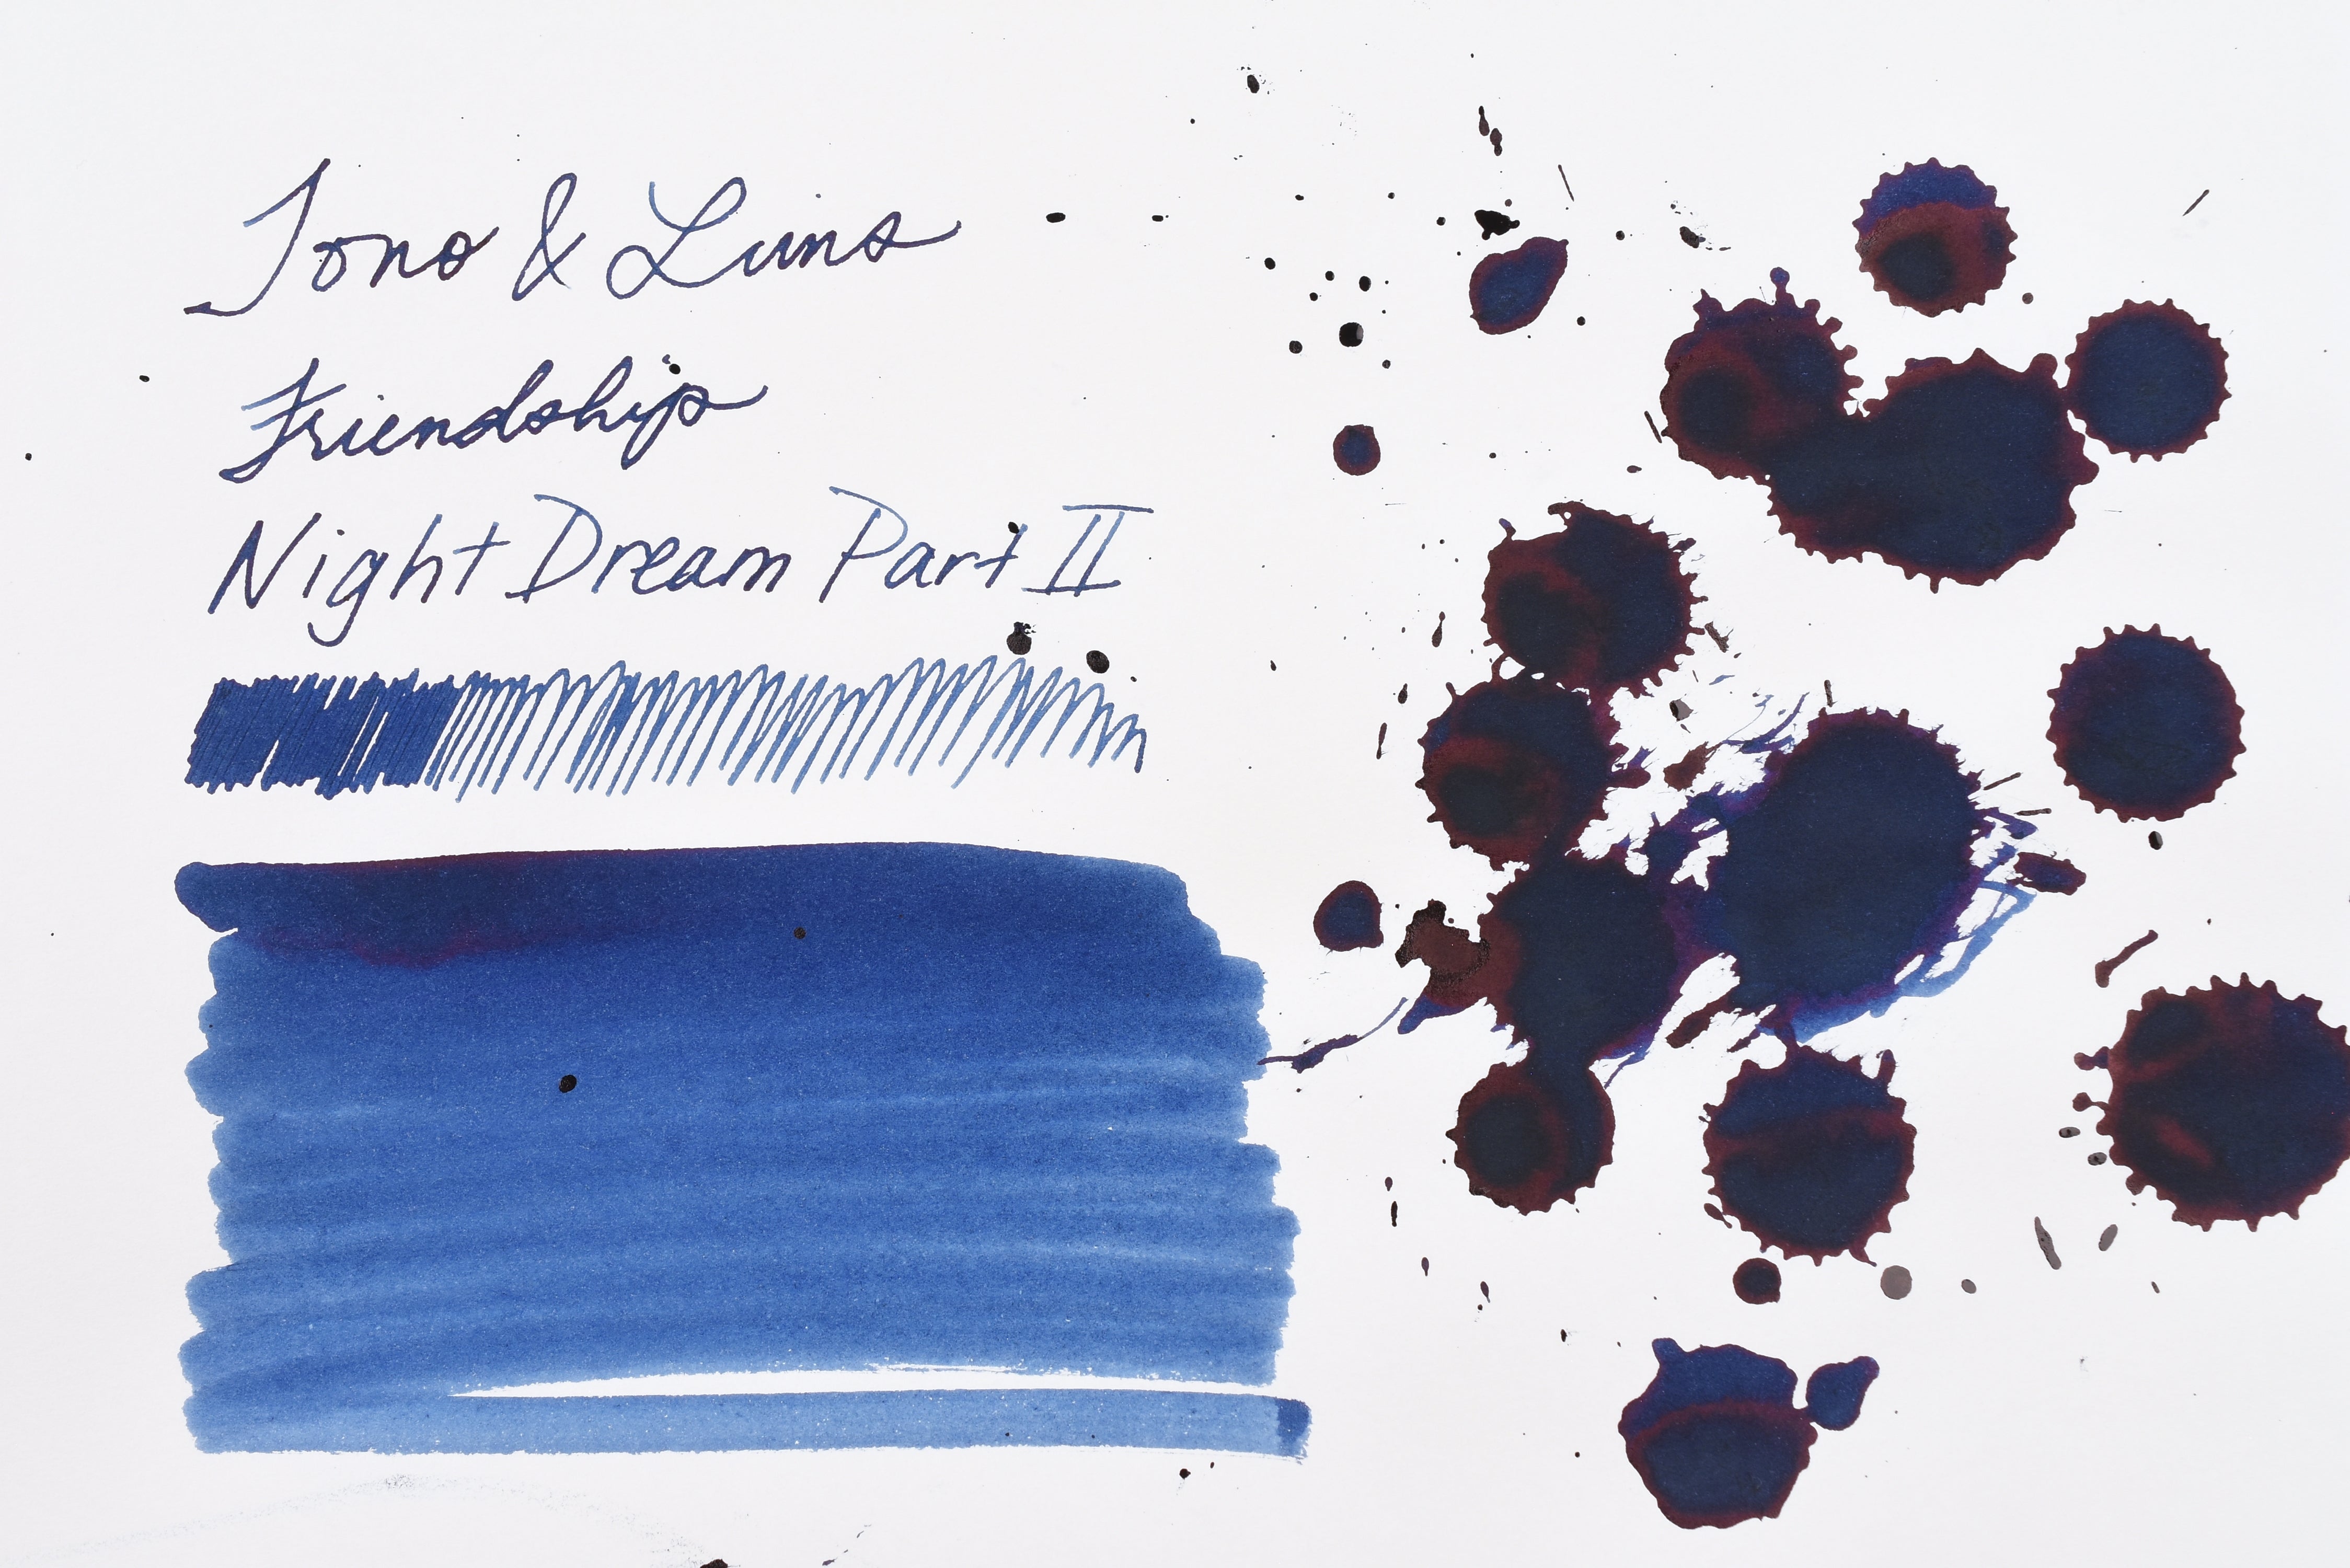 Tono & Lims
Friendship
Night Dream Part II